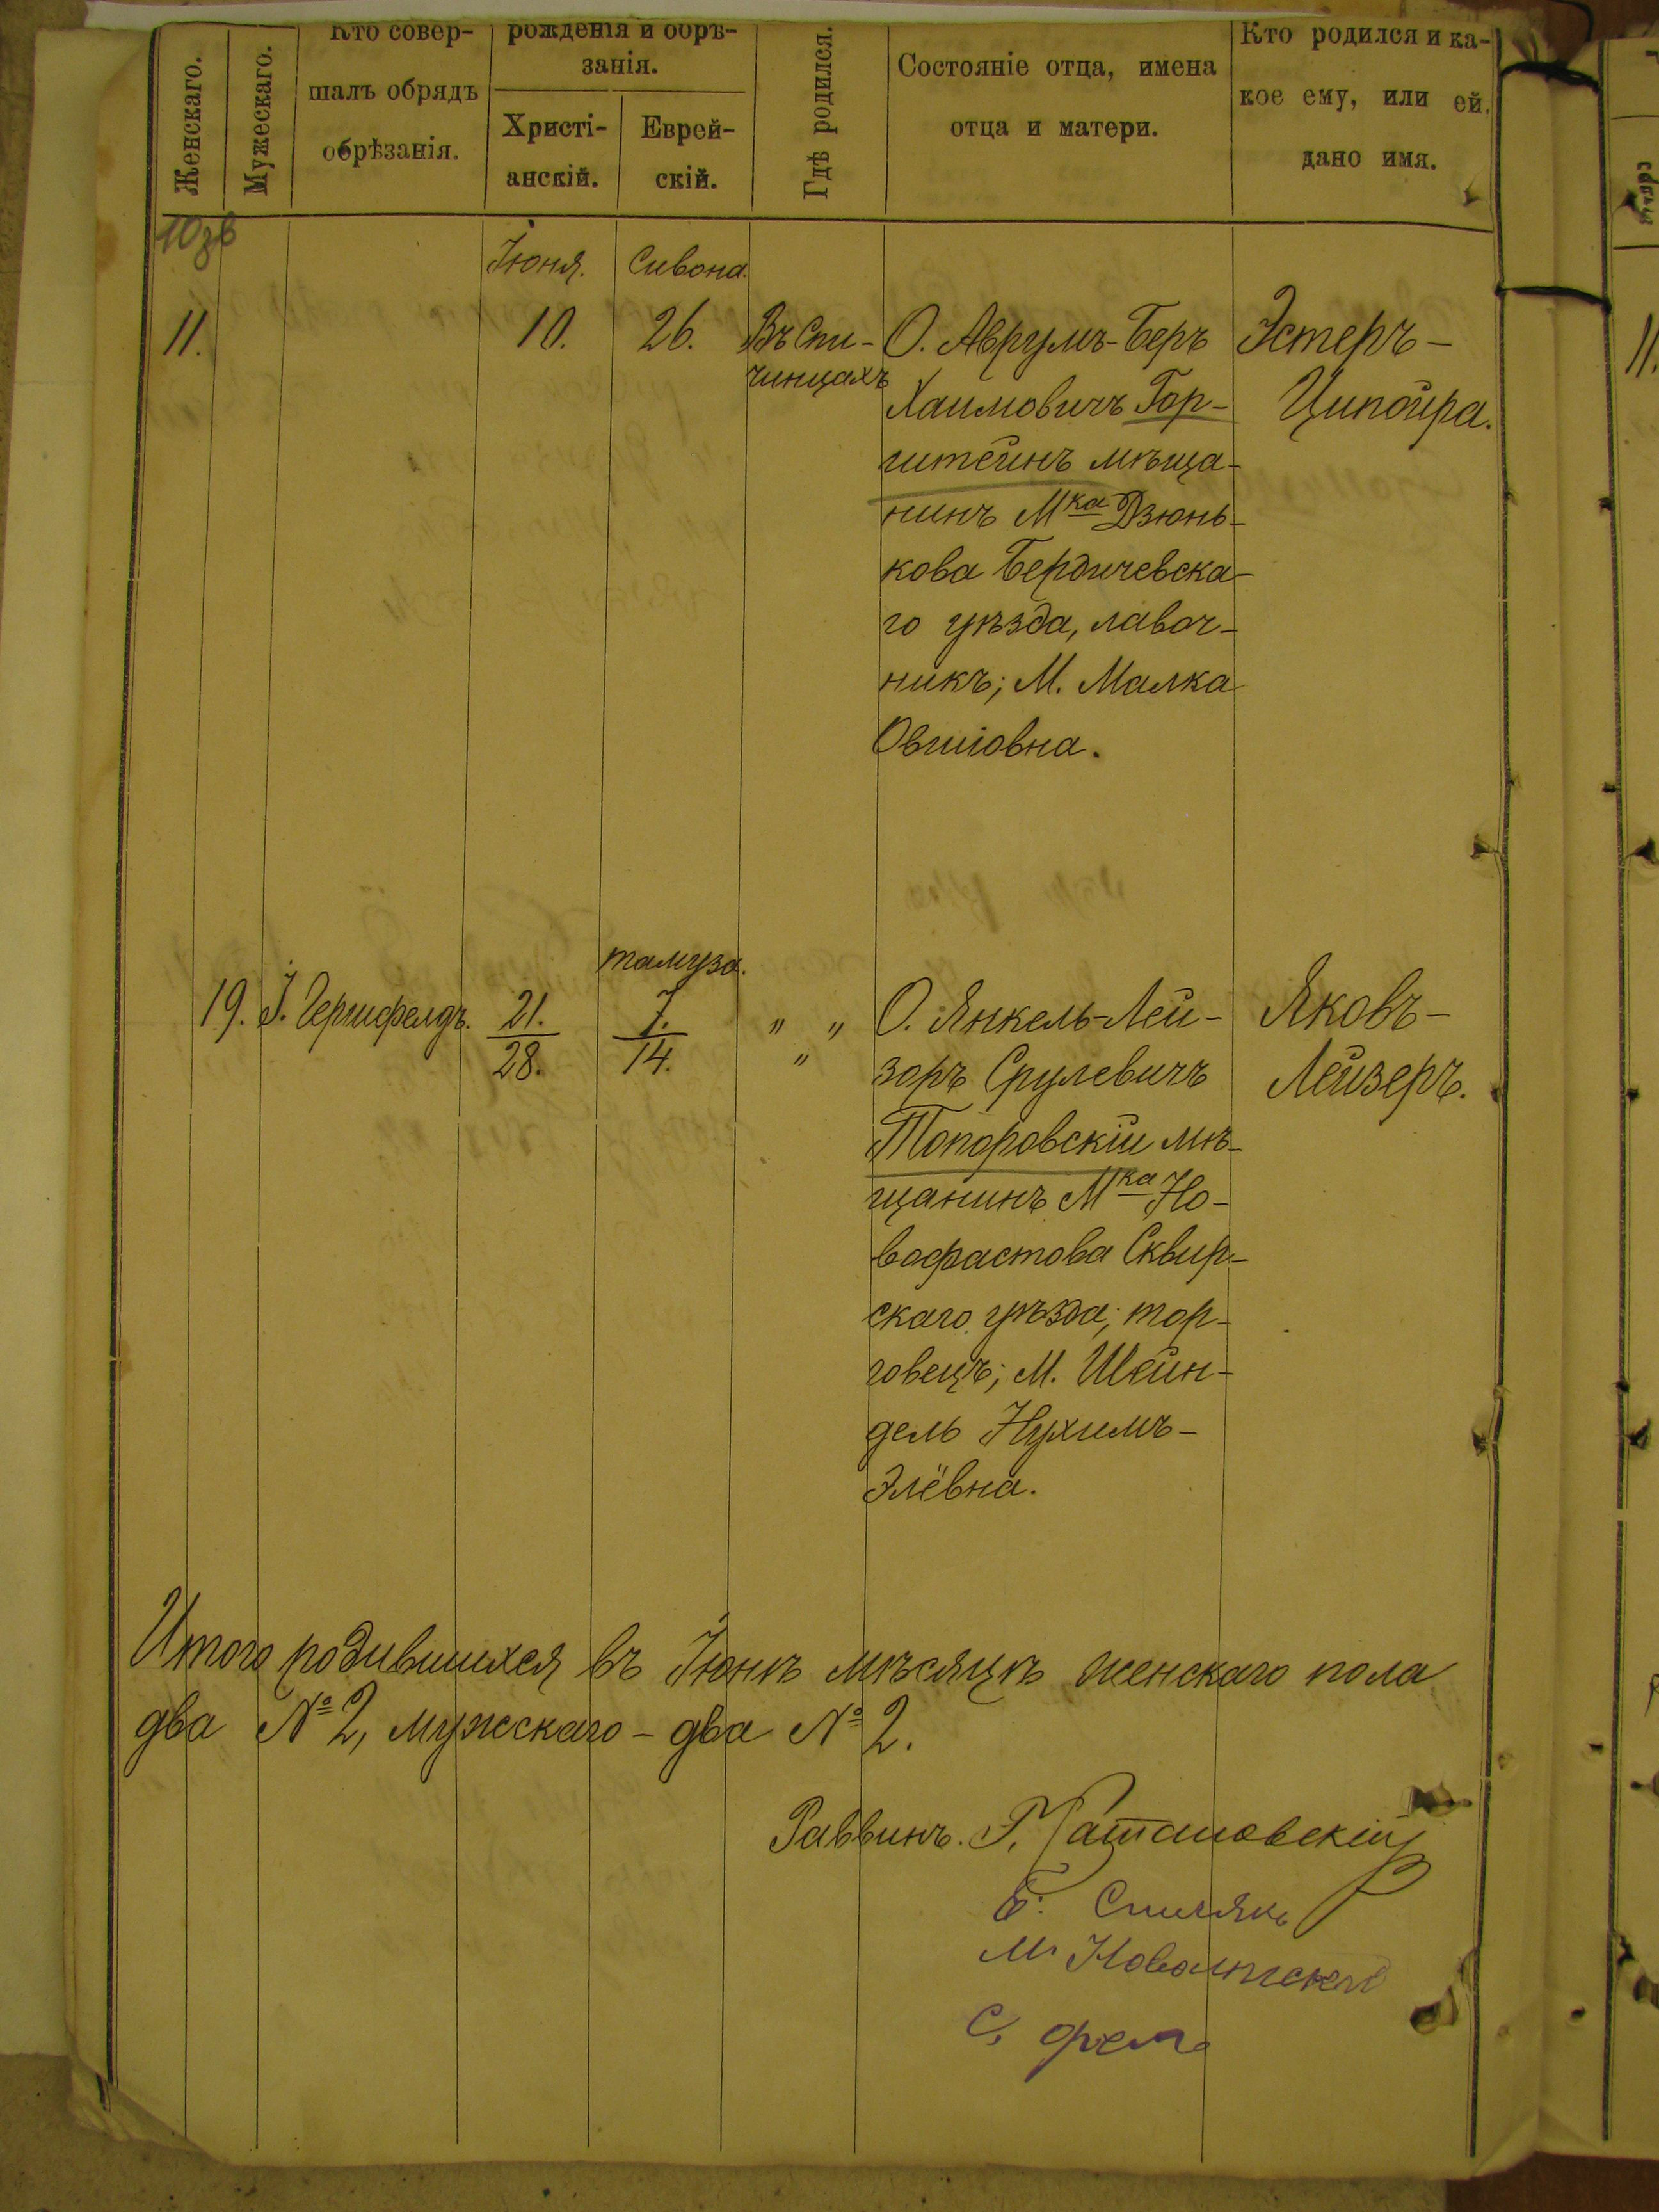 Женскаго.
Мужескаго.
Кто совер-
шалъ обрядъ
обрѣзанія.
рожденія и обрѣ-
занія.
Христі-
анскій.
Еврей-
скій.
Гдѣ родился.
Состояніе отца, имена
отца и матери.
Кто родился и ка-
кое ему, или ей.
дано имя.
Іюня. Сивона.
11. 10. 26. Въ Спи-
чинцахъ
О. Аврумъ-Беръ
Хаимовичъ Гор-
штейнъ мѣща-
нинъ Мка Дзюнь-
кова Бердичевска-
го уѣзда, лавоч-
никъ; М. Малка
Овшіовна.
Эстеръ-
Ципойра.
тамуза.
19. І. Гершфелдъ. 21. 7. " "
28. 14. "
О. Янкель-Лей-
зоръ Срулевичъ
Топоровскій мѣ-
щанинъ Мка Но-
вофастова Сквир-
скаго уѣзда; тор-
говецъ; М. Шейн-
дель Нухимъ-
Элёвна.
Яковъ-
Лейзеръ.
Итого родившихся въ Іюнѣ мѣсяцѣ женскаго пола
два № 2, мужскаго - два № 2.
Раввинъ.
Б.
М.
С.
11.